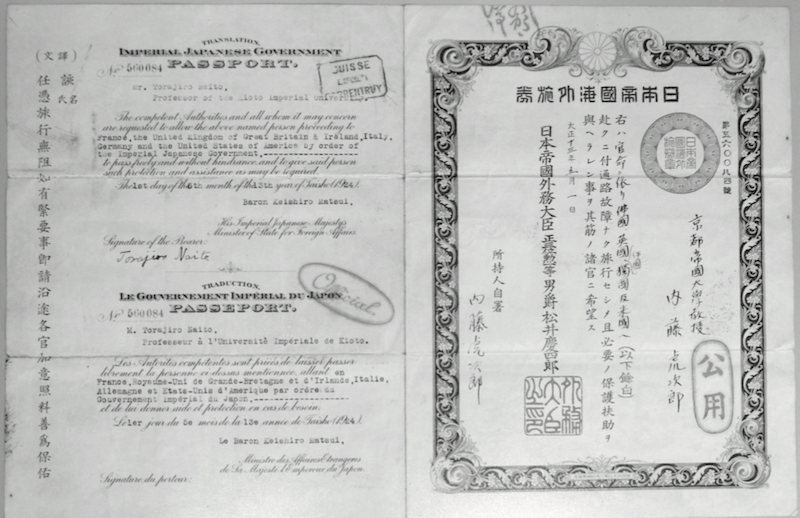 TRANSLATION.
IMPERIAL JAPANESE GOVERNMENT
PASSPORT.
No 560084
SUISSE
PORRENTRUY
Mr. Torajiro Naito,
Professor of the Kioto Imperial University.
The competent Authorities and all whom it may concern
are requested to allow the above named person proceeding to
France, the United Kingdom of Great Britain & Ireland, Italy,
Germany and the United States of America by order of
the Imperial Japanese Government,
to pass freely and without hindrance, and to give said person
such protection and assistance as may be required.
The 1st day of the 5th month of the 13th year of Taisho (1924)
Baron Keishiro Matsui,
His Imperial Japanese Majesty's
Minister of State for Foreign Affairs
Signature of the Bearer:
Torajiro Naito
TRADUCTION.
LE GOUVERNEMENT IMPÉRIAL DU JAPON
PASSEPORT.
Official.
No 560084
M. Torajiro Naito,
Professeur à l'Université Impériale de Kioto.
Les Autorités compétentes sont priées de laisser passer
librement la personne ci-dessus mentionnée, allant en
France, Royaume-Uni de Grande-Bretagne et d'Irlande, Italie,
Allemagne et Etats-Unis d'Amerique par ordre du
Gouvernement Impérial du Japon,
et de lui donner aide et protection en cas de besoin.
Le 1er jour du 5e mois de la 13e année de Taisho (1924)
Le Baron Keishiro Matsui,
Ministre des Affaires Etrangères
de Sa Majesté l'Empereur du Japon.
Signature du porteur:
(譯文)
任憑旅行無阻如有緊要事即請沿途各官加意照料善爲保佑
氏名
日本帝國海外旅券
第五六〇〇八四號
日本帝國海外旅券
京都帝國大學教授
内藤虎次郎
公用
右ハ官命ニ依リ佛國英國伊國獨國及米國ヘ(以下餘白)
赴クニ付通路故障ナク旅行セシメ且必要ノ保護扶助ヲ
與ヘラレン事ヲ其筋ノ諸官ニ希望ス
大正十三年五月一日
日本帝國外務大臣正三位勲一等男爵松井慶四郎
外務大臣之印
所持人自署
内藤虎次郎